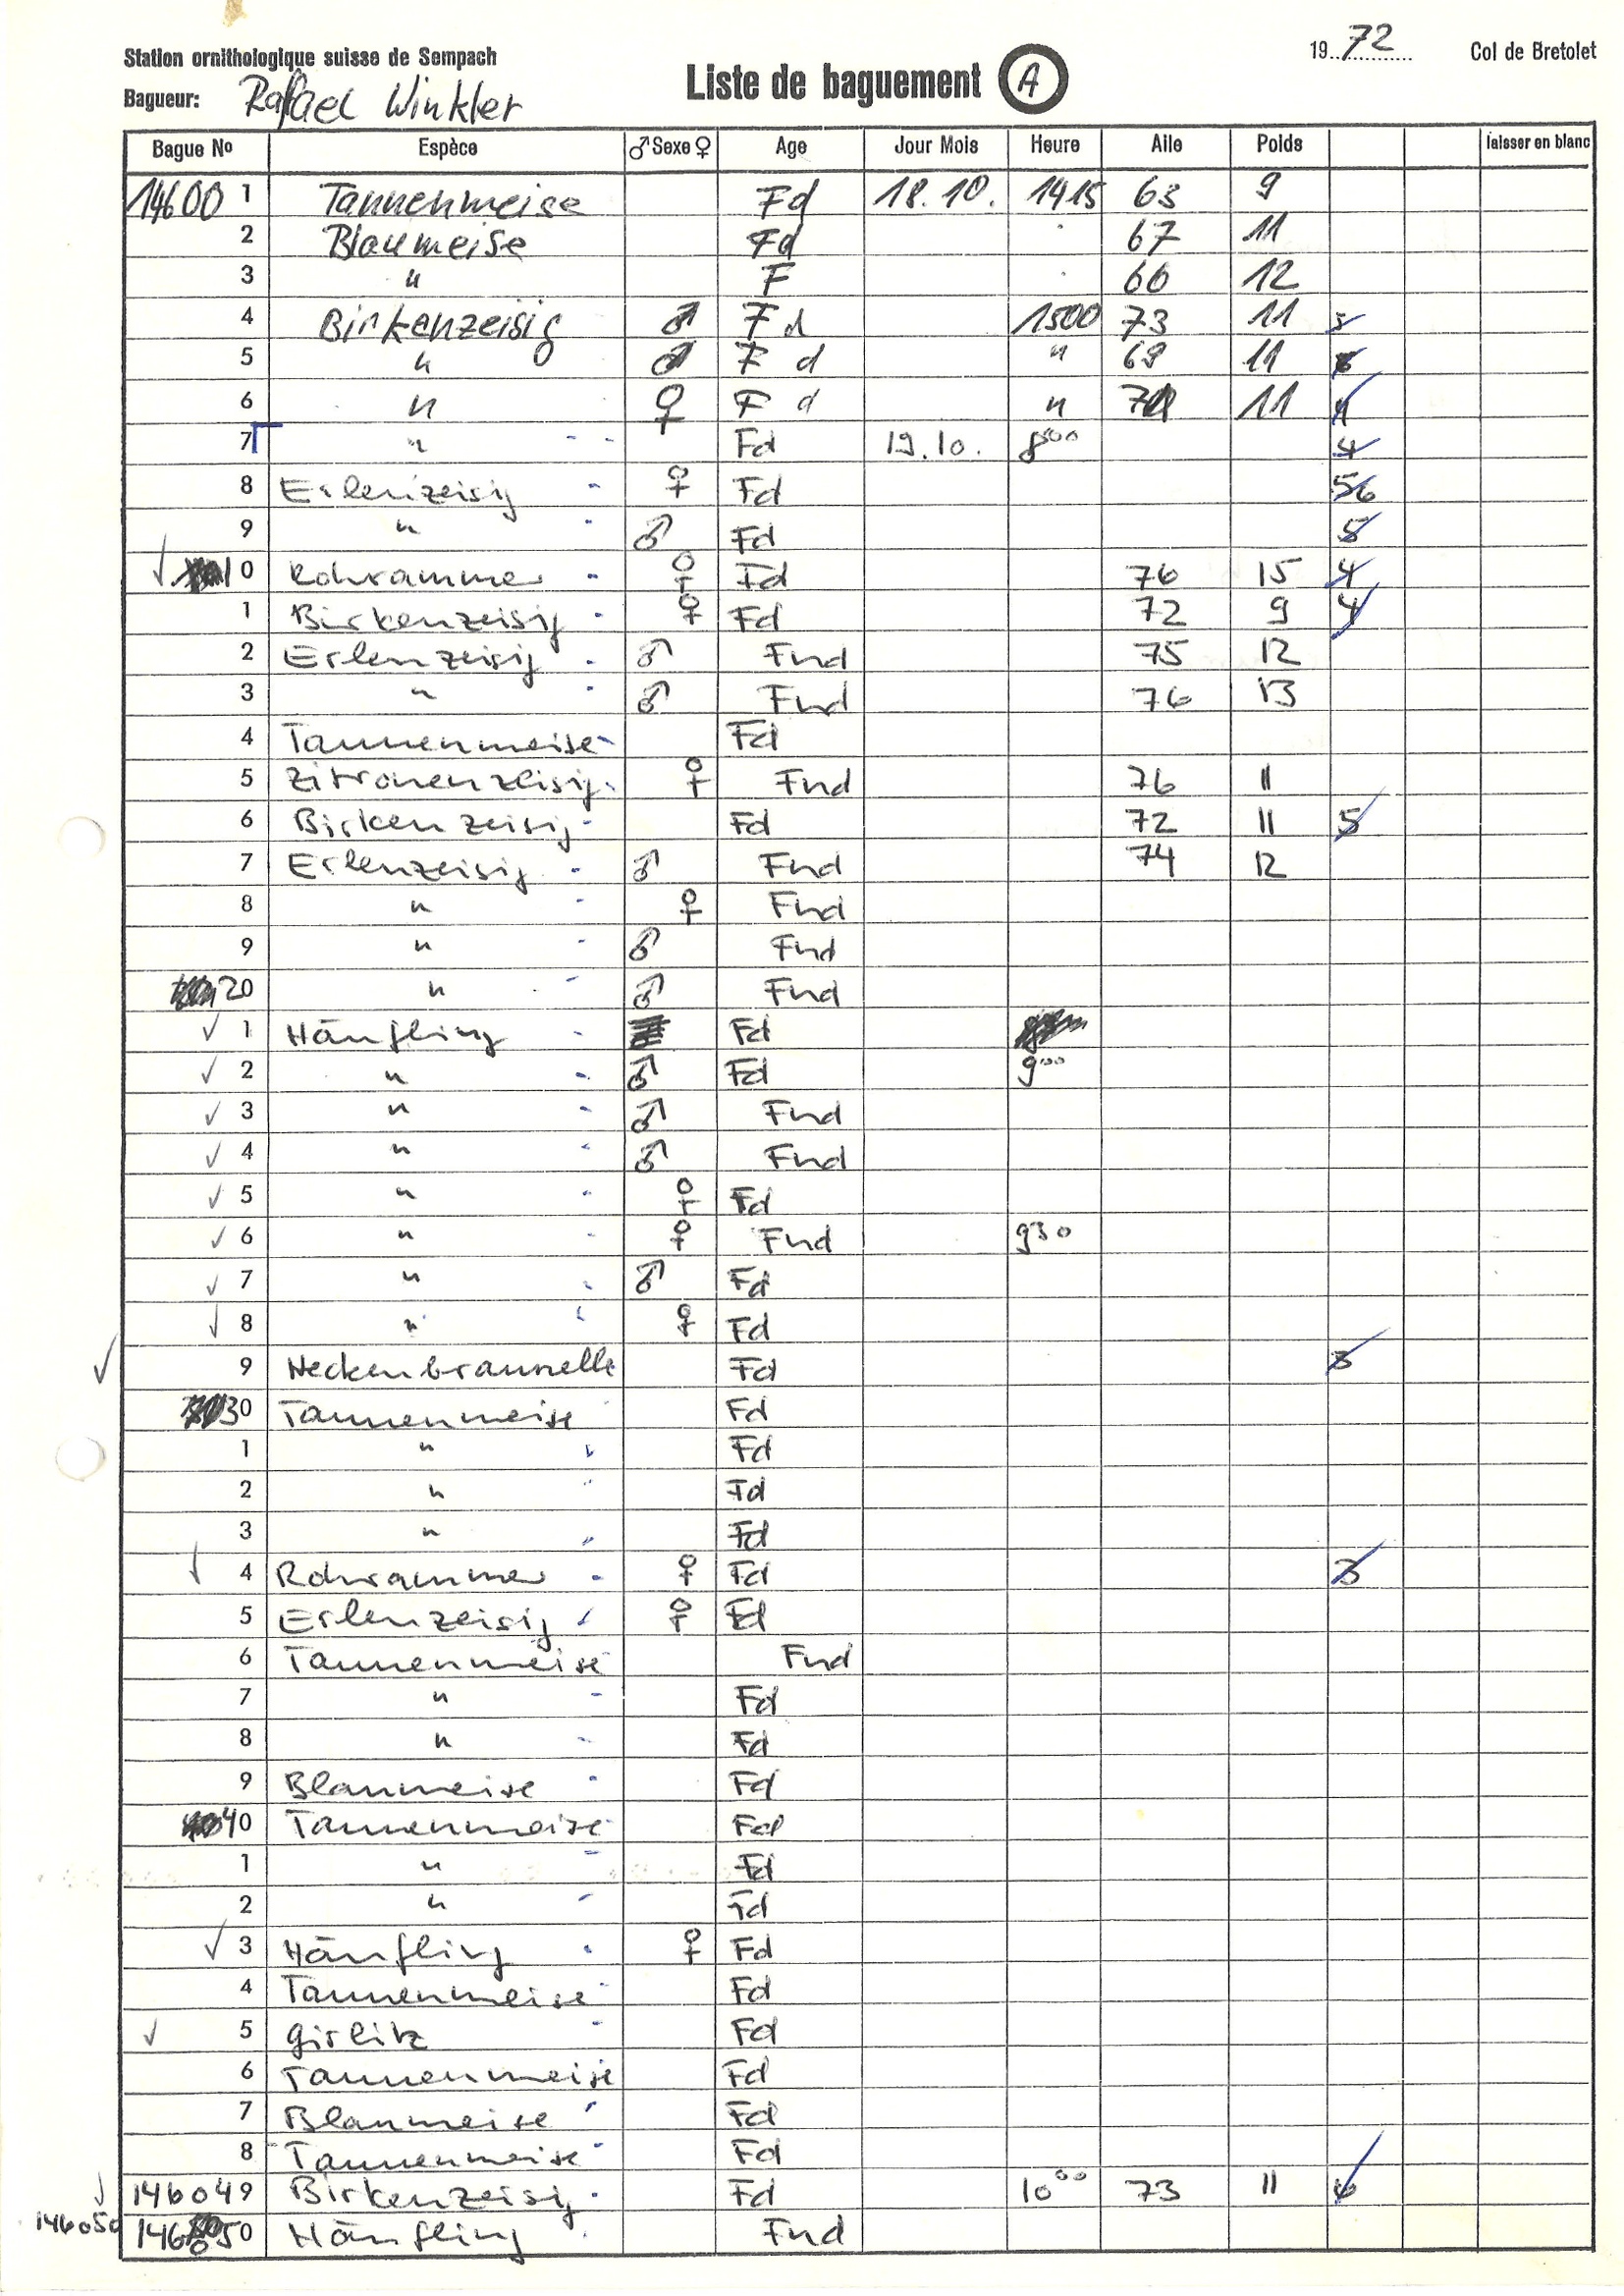 Station ornithologique suisse de Sempach
19 72 Col de Bretolet
Bagueur: Rafael Winkler
Liste de baguement A
Bague No Espèce ♂ Sexe ♀ Age Jour Mois Heure Aile Poids laisser en blanc
14600 1 Tannenmeise Fd 18.10. 1415 63 9
2 Blaumeise Fd 67 11
3 " F 66 12
4 Birkenzeisig ♂ Fd 1500 73 11
5 " ♂ F d " 69 11
6 " ♀ F d " 11
7 " Fd 19.10. 800 4
8 Erlenzeisig ♀ Fd 56
9 " ♂ Fd 5
10 Rohrammer ♀ Fd 76 15 4
1 Birkenzeisig ♀ Fd 72 9 4
2 Erlenzeisig ♂ Fnd 75 12
3 " ♂ Fnd 76 13
4 Tannenmeise Fd
5 Zitronenzeisig ♀ Fnd 76 11
6 Birkenzeisig Fd 72 11 5
7 Erlenzeisig ♂ Fnd 74 12
8 " ♀ Fnd
9 " ♂ Fnd
20 " ♂ Fnd
✓ 1 Hänfling Fd
✓ 2 " ♂ Fd 900
✓ 3 " ♂ Fnd
✓ 4 " ♂ Fnd
✓ 5 " ♀ Fd
✓ 6 " ♀ Fnd 930
✓ 7 " ♂ Fd
✓ 8 " ♀ Fd
✓ 9 Heckenbraunelle Fd 3
30 Tannenmeise Fd
1 " Fd
2 " Fd
3 " Fd
✓ 4 Rohrammer ♀ Fd 3
5 Erlenzeisig ♀ Fd
6 Tannenmeise Fnd
7 " Fd
8 " Fd
9 Blaumeise Fd
40 Tannenmeise Fd
1 " Fd
2 " Fd
✓ 3 Hänfling ♀ Fd
4 Tannenmeise Fd
✓ 5 Girlitz Fd
6 Tannenmeise Fd
7 Blaumeise Fd
8 Tannenmeise Fd
146049 Birkenzeisig Fd 1000 73 11
146050 146050 Hänfling Fnd